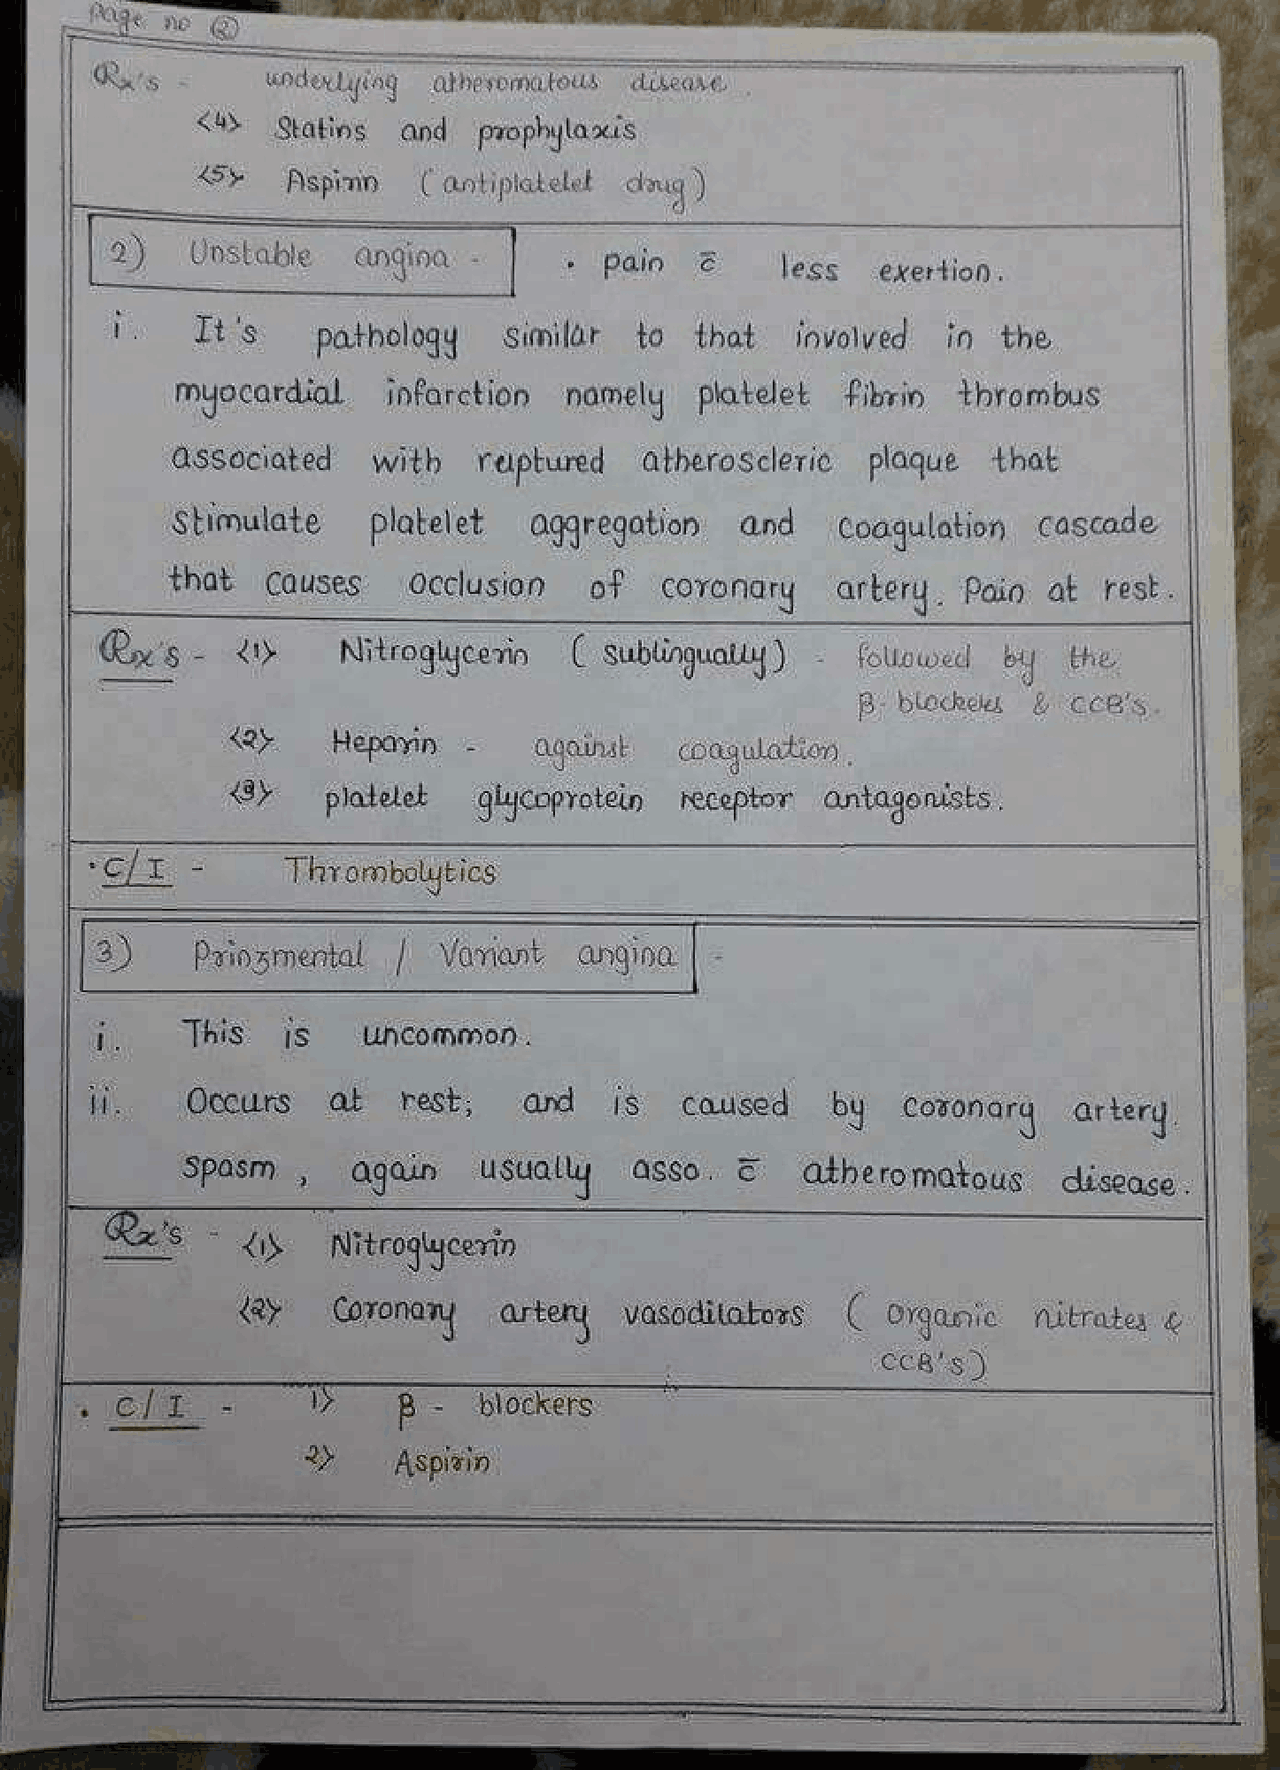 Page no ②
Rx's - underlying atheromatous disease.
<4> Statins and prophylaxis
<5> Aspirin (antiplatelet drug)
2) Unstable angina - • pain c̄ less exertion.
i. It's pathology similar to that involved in the
myocardial infarction namely platelet fibrin thrombus
associated with ruptured atheroscleric plaque that
stimulate platelet aggregation and coagulation cascade
that causes occlusion of coronary artery. Pain at rest.
Rx's - <1> Nitroglycerin (sublingually) - followed by the
β-blockers & CCB's.
<2> Heparin - against coagulation.
<3> platelet glycoprotein receptor antagonists.
• C/I - Thrombolytics
3) Prinzmental / Variant angina -
i. This is uncommon.
ii. Occurs at rest; and is caused by coronary artery.
spasm, again usually asso. c̄ atheromatous disease.
Rx's - <1> Nitroglycerin
<2> Coronary artery vasodilators (organic nitrates &
CCB's)
• C/I - 1> β - blockers
2> Aspirin